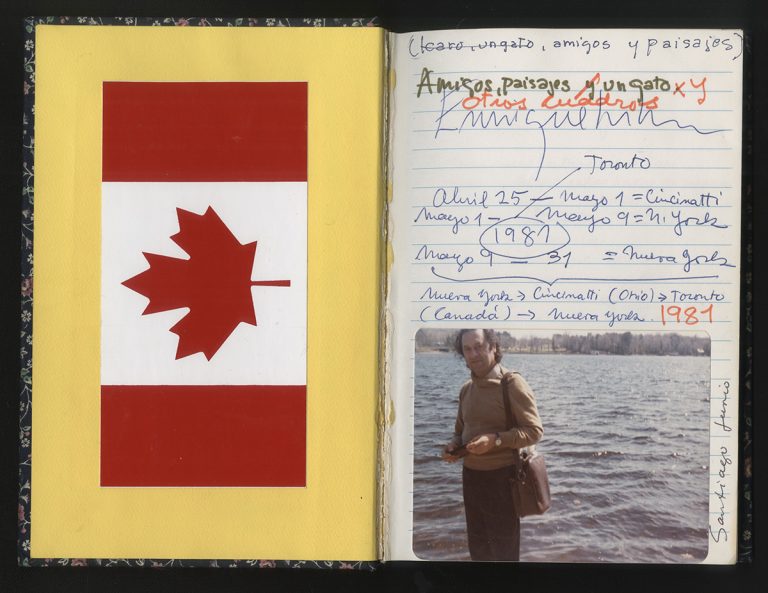 (Icaro, un gato, amigos y paisajes)
Amigos, paisajes y un gato x y
otros cuadros
Enrique Lihn
Toronto
Abril 25 — Mayo 1 = Cincinatti
Mayo 1 — Mayo 9 = N. York
1981
Mayo 9 — 31 = Nueva York
Nueva York → Cincinatti (Ohio) → Toronto
(Canadá) → Nueva York. 1981
Santiago Junio